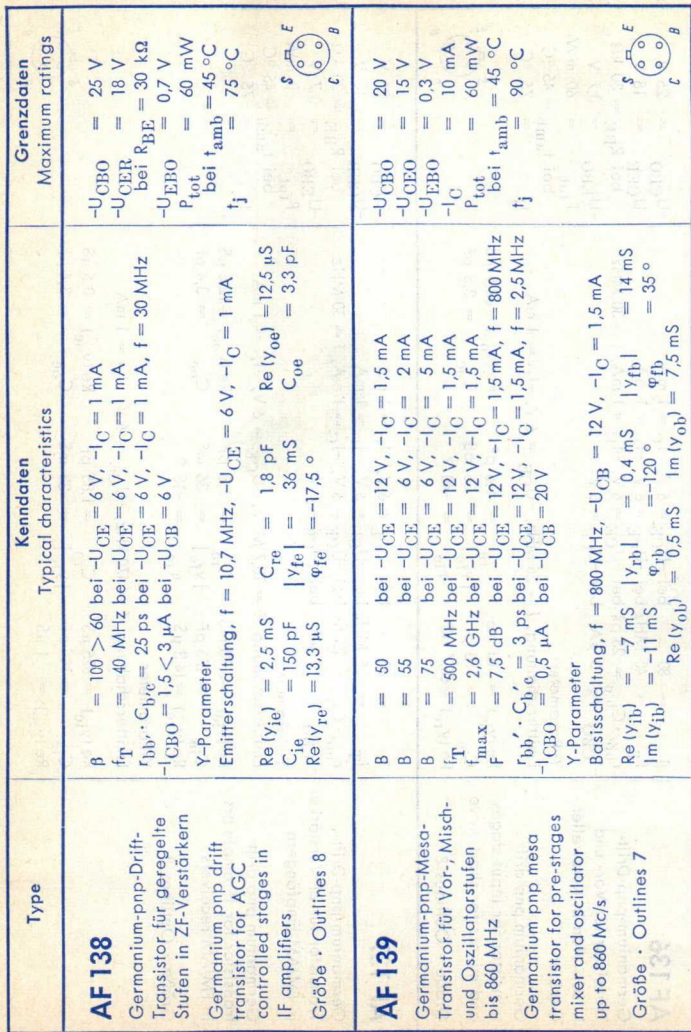 Type
Kenndaten
Typical characteristics
Grenzdaten
Maximum ratings
AF 138
Germanium-pnp-Drift-
Transistor für geregelte
Stufen in ZF-Verstärkern
Germanium pnp drift
transistor for AGC
controlled stages in
IF amplifiers
Größe · Outlines 8
β = 100 > 60 bei -UCE = 6 V, -IC = 1 mA
fT = 40 MHz bei -UCE = 6 V, -IC = 1 mA
rbb' · Cb'c = 25 ps bei -UCE = 6 V, -IC = 1 mA, f = 30 MHz
-ICBO = 1,5 < 3 µA bei -UCB = 6 V
Y-Parameter
Emitterschaltung, f = 10,7 MHz, -UCE = 6 V, -IC = 1 mA
Re (yie) = 2,5 mS Cre = 1,8 pF Re (yoe) = 12,5 µS
Cie = 150 pF |yfe| = 36 mS Coe = 3,3 pF
Re (yre) = 13,3 µS φfe = -17,5 °
-UCBO = 25 V
-UCER = 18 V
bei RBE = 30 kΩ
-UEBO = 0,7 V
Ptot = 60 mW
bei tamb = 45 °C
tj = 75 °C
S E
C B
AF 139
Germanium-pnp-Mesa-
Transistor für Vor-, Misch-
und Oszillatorstufen
bis 860 MHz
Germanium pnp mesa
transistor for pre-stages
mixer and oscillator
up to 860 Mc/s
Größe · Outlines 7
B = 50 bei -UCE = 12 V, -IC = 1,5 mA
B = 55 bei -UCE = 6 V, -IC = 2 mA
B = 75 bei -UCE = 6 V, -IC = 5 mA
fT = 500 MHz bei -UCE = 12 V, -IC = 1,5 mA
fmax = 2,6 GHz bei -UCE = 12 V, -IC = 1,5 mA
F = 7,5 dB bei -UCE = 12 V, -IC = 1,5 mA, f = 800 MHz
rbb' · Cb'c = 3 ps bei -UCE = 12 V, -IC = 1,5 mA, f = 2,5 MHz
-ICBO = 0,5 µA bei -UCB = 20 V
Y-Parameter
Basisschaltung, f = 800 MHz, -UCB = 12 V, -IC = 1,5 mA
Re (yib) = -7 mS |yrb| = 0,4 mS |yfb| = 14 mS
Im (yib) = -11 mS φrb = -120 ° φfb = 35 °
Re (yob) = 0,5 mS Im (yob) = 7,5 mS
-UCBO = 20 V
-UCEO = 15 V
-UEBO = 0,3 V
-IC = 10 mA
Ptot = 60 mW
bei tamb = 45 °C
tj = 90 °C
S E
C B